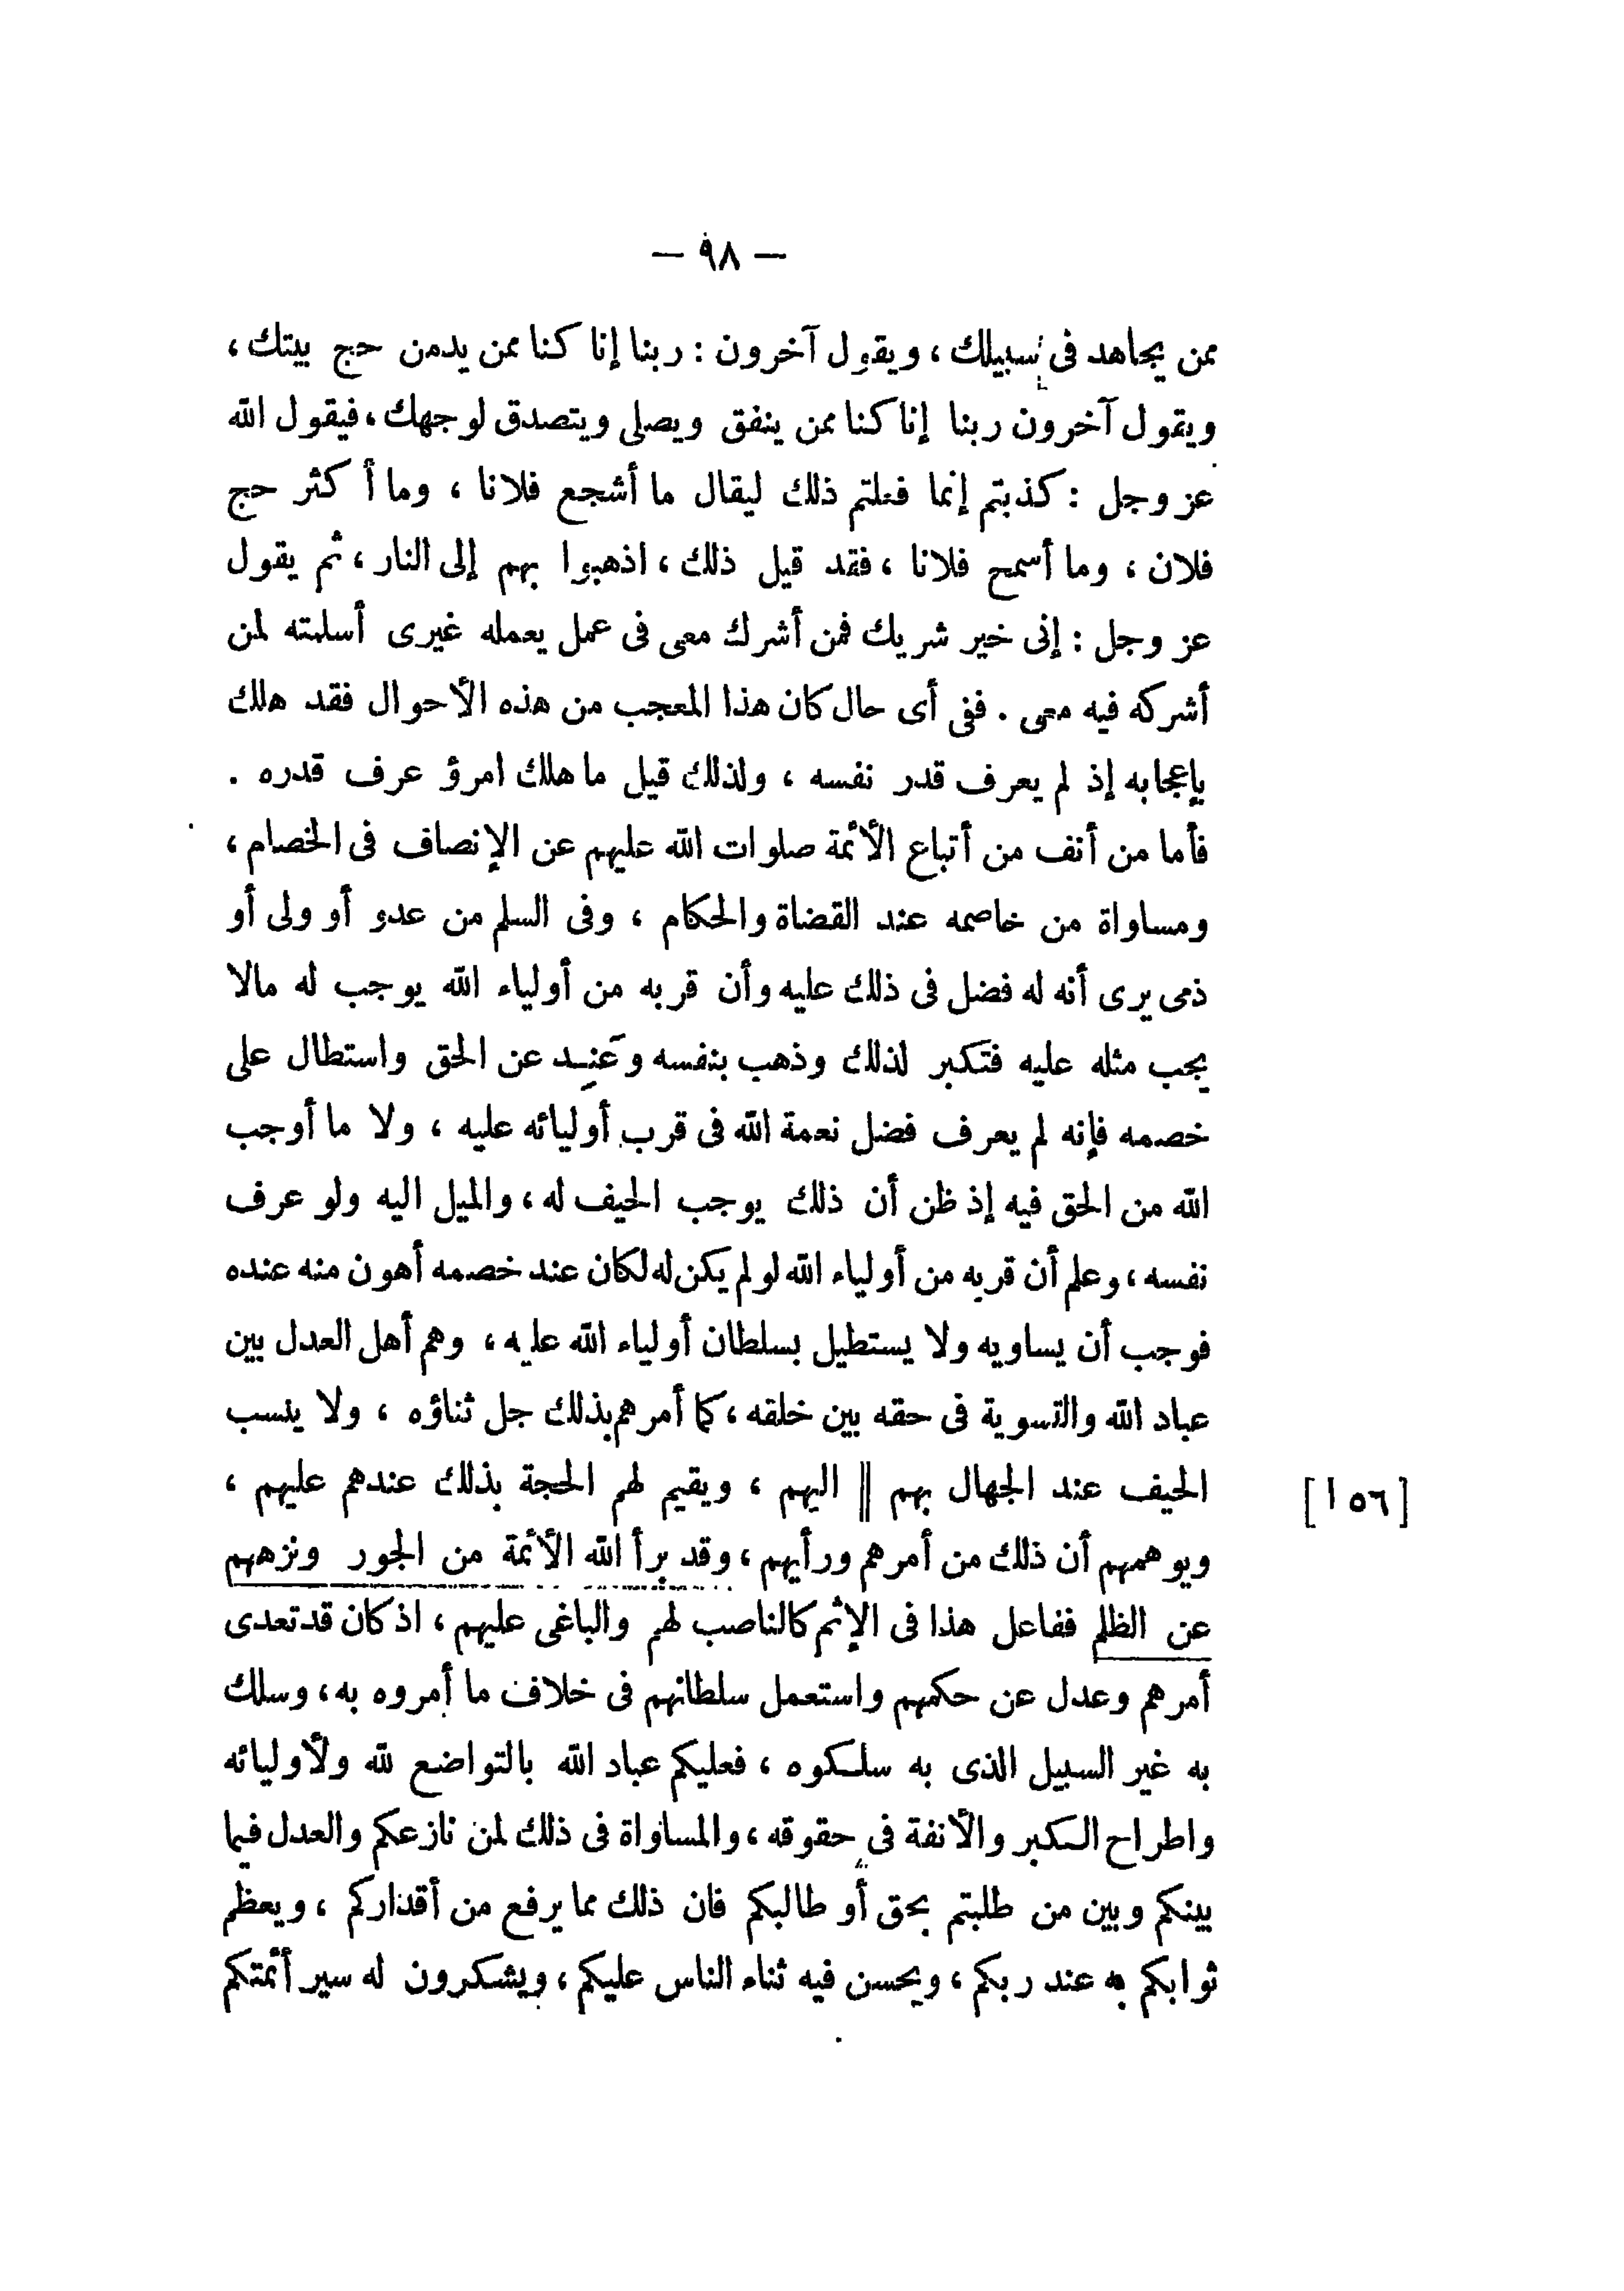 — ٩٨ —
ممن يجاهد فى سبيلك ، ويقول آخرون : ربنا إنا كنا ممن يدمن حج بيتك ،
ويقول آخرون ربنا إنا كنا ممن ينفق ويصلى ويتصدق لوجهك ، فيقول الله
عز وجل : كذبتم إنما فعلتم ذلك ليقال ما أشجع فلانا ، وما أكثر حج
فلان ، وما أسمح فلانا ، فقد قيل ذلك ، اذهبوا بهم إلى النار ، ثم يقول
عز وجل : إنى خير شريك فمن أشرك معى فى عمل يعمله غيرى أسلمته لمن
أشركه فيه معى . ففى أى حال كان هذا المعجب من هذه الأحوال فقد هلك
بإعجابه إذ لم يعرف قدر نفسه ، ولذلك قيل ما هلك امرؤ عرف قدره .
فأما من أنف من أتباع الأئمة صلوات الله عليهم عن الإنصاف فى الخصام ،
ومساواة من خاصمه عند القضاة والحكام ، وفى السلم من عدو أو ولى أو
ذمى يرى أنه له فضل فى ذلك عليه وأن قربه من أولياء الله يوجب له مالا
يجب مثله عليه فتكبر لذلك وذهب بنفسه وعَنِد عن الحق واستطال على
خصمه فإنه لم يعرف فضل نعمة الله فى قرب أوليائه عليه ، ولا ما أوجب
الله من الحق فيه إذ ظن أن ذلك يوجب الحيف له ، والميل اليه ولو عرف
نفسه ، وعلم أن قربه من أولياء الله لو لم يكن له لكان عند خصمه أهون منه عنده
فوجب أن يساويه ولا يستطيل بسلطان أولياء الله عليه ، وهم أهل العدل بين
عباد الله والتسوية فى حقه بين خلقه ، كما أمرهم بذلك جل ثناؤه ، ولا ينسب
الحيف عند الجهال بهم || اليهم ، ويقيم لهم الحجة بذلك عندهم عليهم ،
[١٥٦]
ويوهمهم أن ذلك من أمرهم ورأيهم ، وقد برأ الله الأئمة من الجور ونزههم
عن الظلم ففاعل هذا فى الإثم كالناصب لهم والباغى عليهم ، اذ كان قد تعدى
أمرهم وعدل عن حكمهم واستعمل سلطانهم فى خلاف ما أمروه به ، وسلك
به غير السبيل الذى به سلكوه ، فعليكم عباد الله بالتواضع لله ولأوليائه
واطراح الكبر والأنفة فى حقوقه ، والمساواة فى ذلك لمن نازعكم والعدل فيما
بينكم وبين من طلبتم بحق أو طالبكم فان ذلك مما يرفع من أقداركم ، ويعظم
ثوابكم به عند ربكم ، ويحسن فيه ثناء الناس عليكم ، ويشكرون له سير أئمتكم